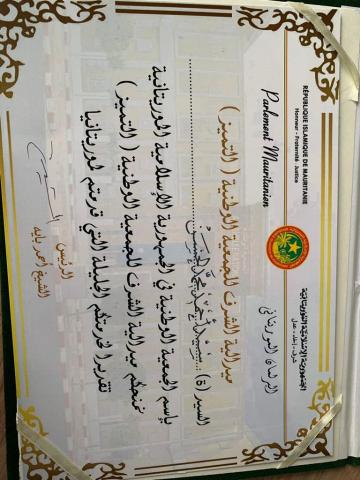 RÉPUBLIQUE ISLAMIQUE DE MAURITANIE
Honneur - Fraternité - Justice
Parlement Mauritanien
الجمهورية الإسلامية الموريتانية
شرف - إخاء - عدل
البرلمان الموريتاني
ميدالية الشرف للجمعية الوطنية ( التميز )
السيد (ة)
باسم الجمعية الوطنية في الجمهورية الإسلامية الموريتانية
نمنحكم ميدالية الشرف للجمعية الوطنية ( التميز )
تقديرا لخدمتكم الجليلة التي قدمتم لموريتانيا
الرئيس
الشيخ أحمد بايه